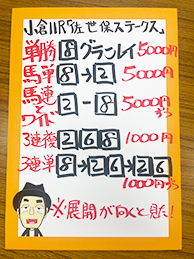 小倉11R「佐世保ステークス」
単勝 8 グランレイ 5000円
馬単 8→2 5000円
馬連とワイド 2-8 5000円ずつ
3連複 2 6 8 1000円
3連単 8→26→26
1000円ずつ
※展開が向くと見た!